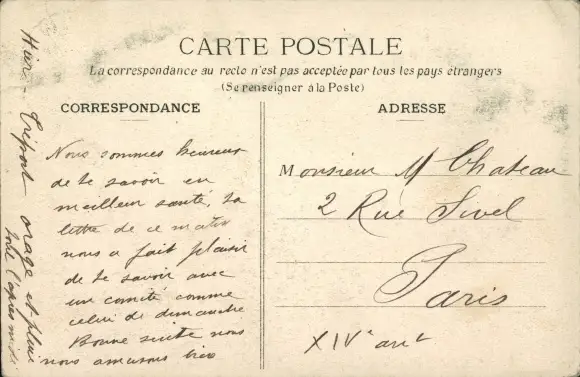 CARTE POSTALE
La correspondance au recto n'est pas acceptée par tous les pays étrangers
(Se renseigner à la Poste)
CORRESPONDANCE
Nous sommes heureux
de te savoir en
meilleur santé, ta
lettre de ce matin
nous a fait plaisir
de te savoir avec
un comité comme
celui de dimanche
Bonne suite nous
nous amusons bien
Tréport orage et pluie
toute l'après midi
ADRESSE
Monsieur M Chateau
2 Rue Sivel
Paris
XIVe arrt